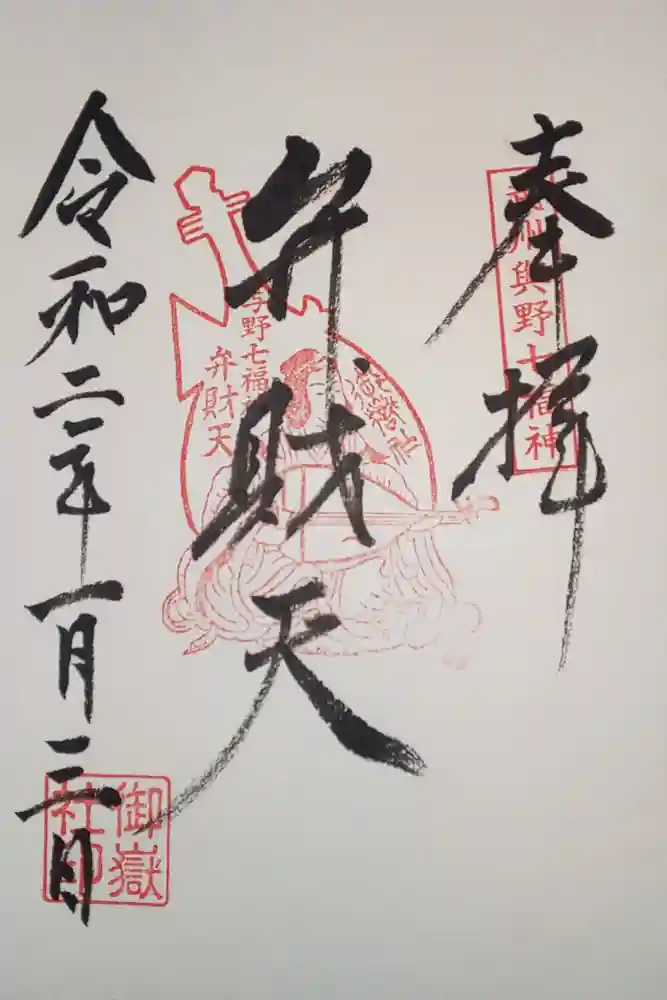 奉拝
武州與野七福神
弁財天
与野七福神
弁財天
御嶽社
令和二年一月三日
御嶽
社印